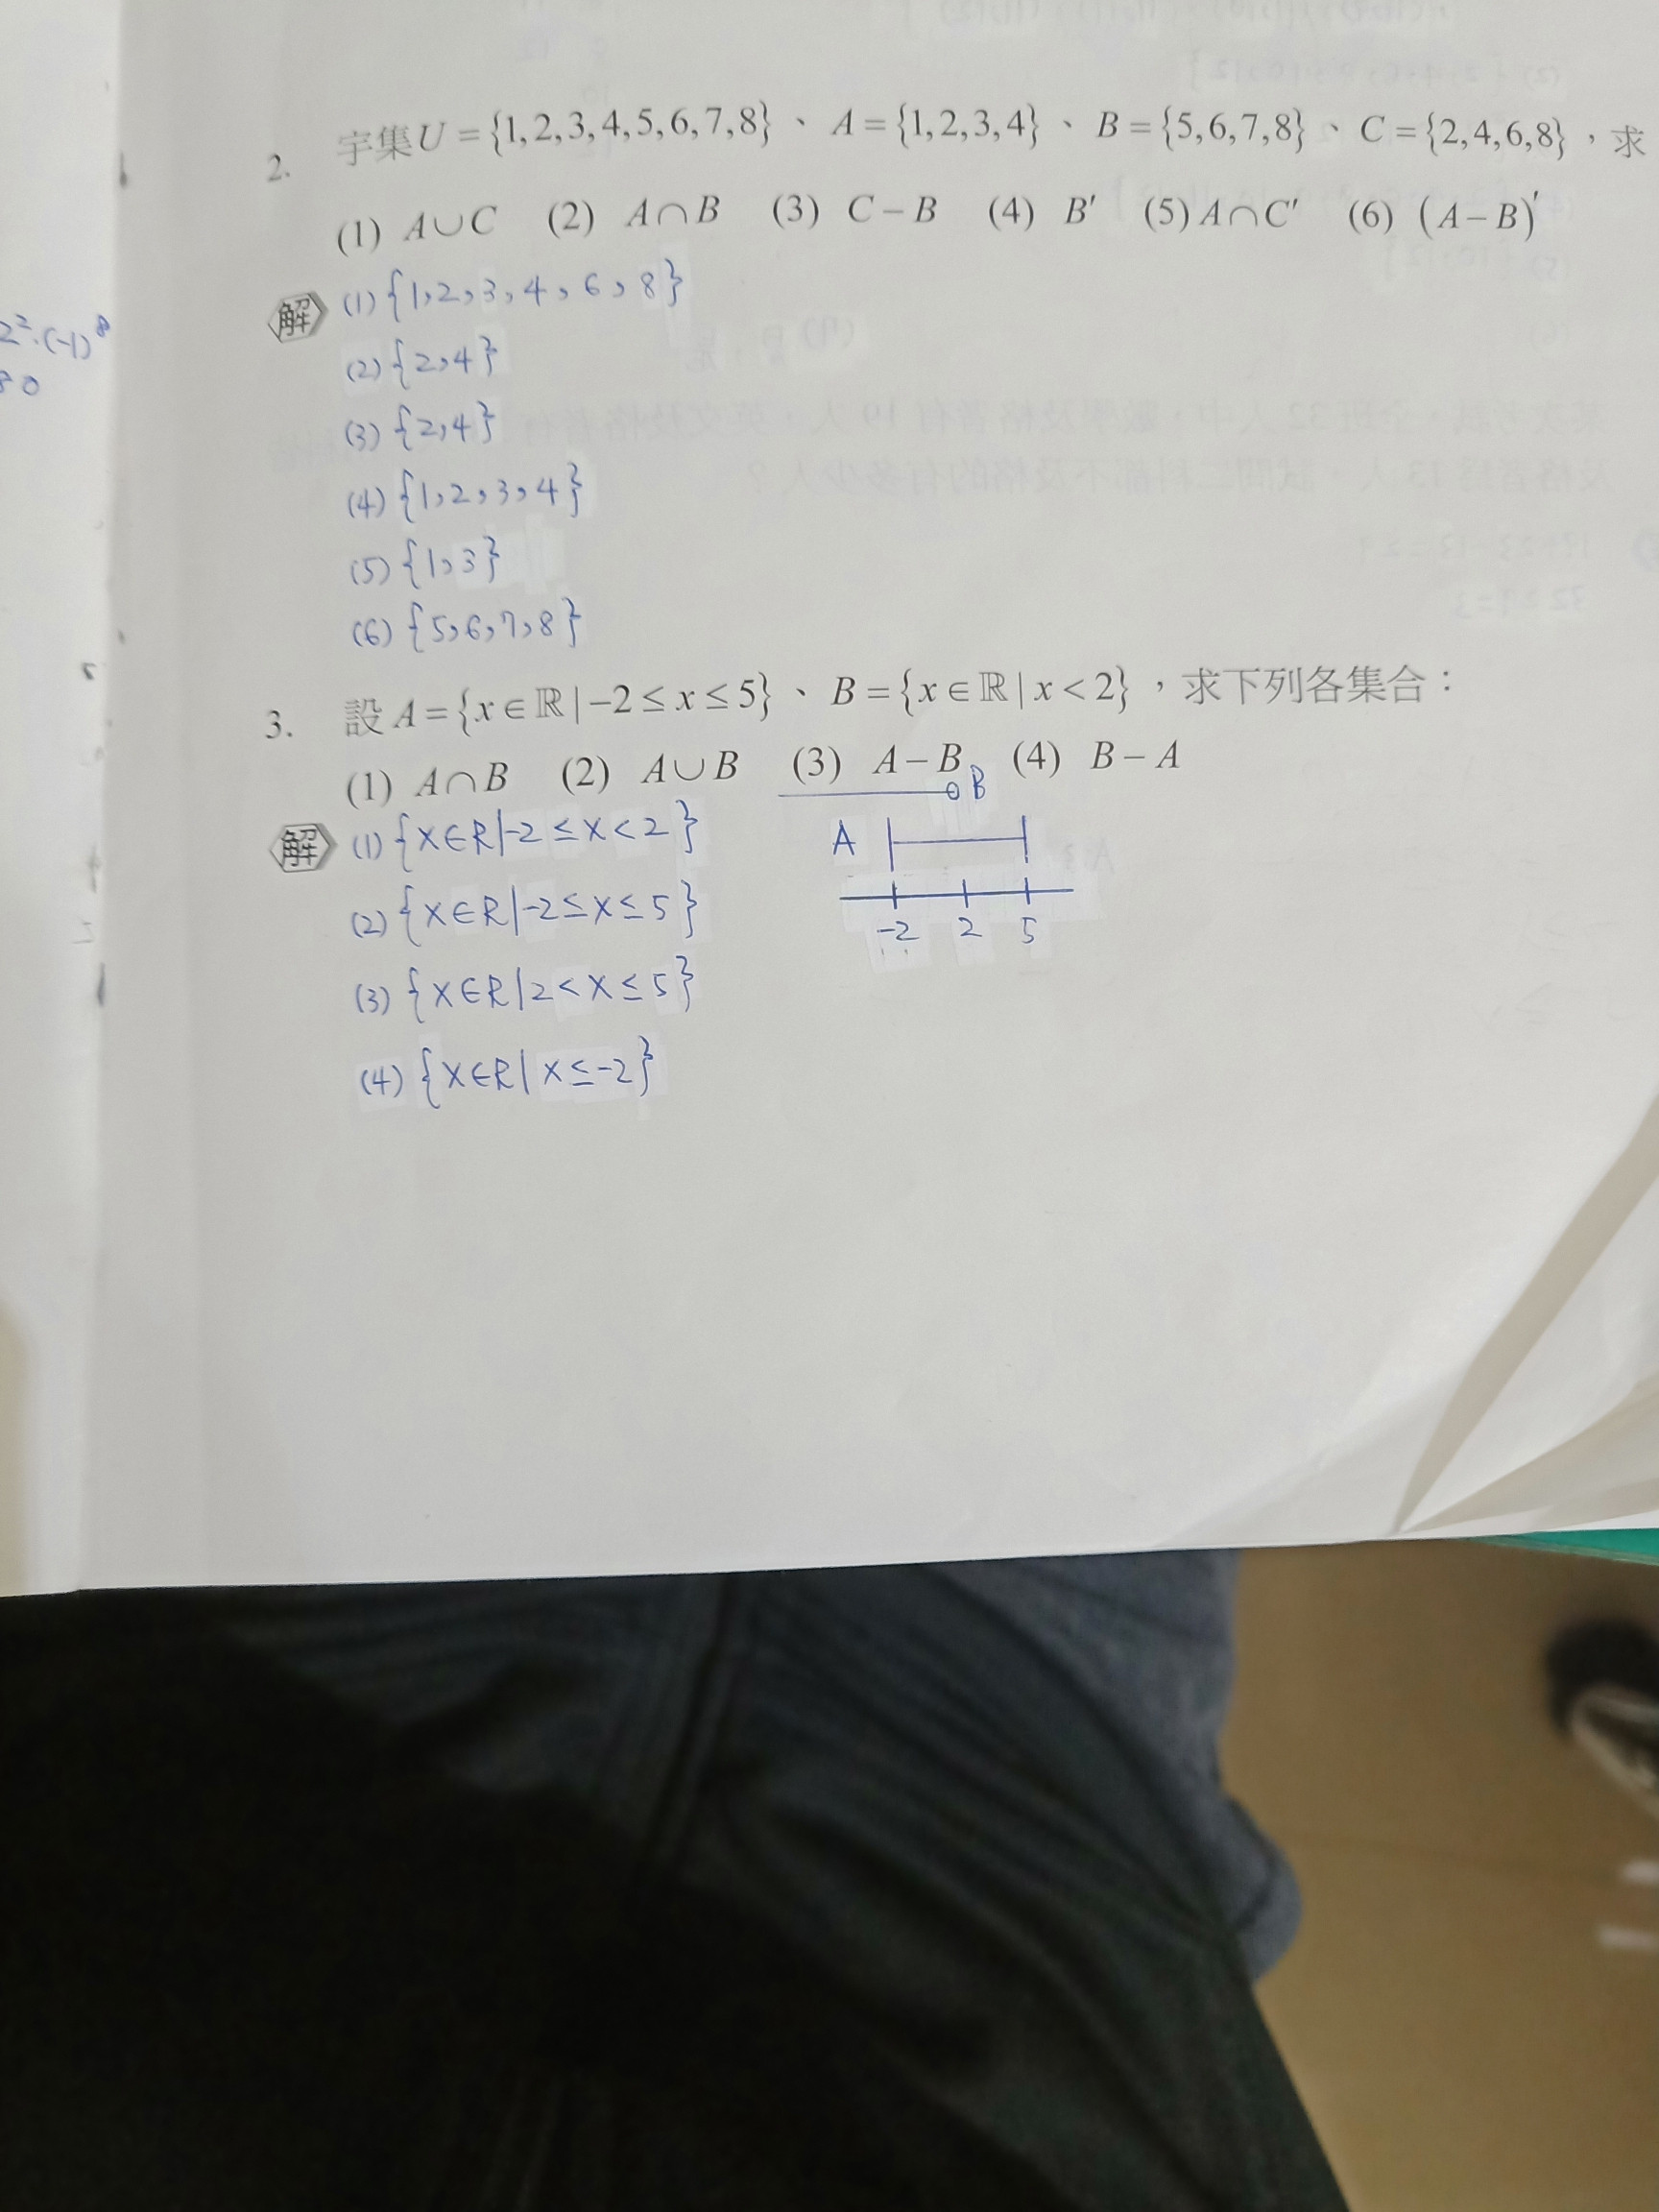 2. 宇集U = {1,2,3,4,5,6,7,8}、A = {1,2,3,4}、B = {5,6,7,8}、C = {2,4,6,8},求
(1) A∪C (2) A∩B (3) C−B (4) B′ (5) A∩C′ (6) (A−B)′
解 (1) {1,2,3,4,6,8}
(2) {2,4}
(3) {2,4}
(4) {1,2,3,4}
(5) {1,3}
(6) {5,6,7,8}
3. 設 A = {x∈ℝ|−2≤x≤5}、B = {x∈ℝ|x<2},求下列各集合:
(1) A∩B (2) A∪B (3) A−B (4) B−A
B
解 (1) {x∈R|-2≤x<2}
A
(2) {x∈R|-2≤x≤5}
-2 2 5
(3) {x∈R|2<x≤5}
(4) {x∈R|x≤-2}
2²·(-1)⁸